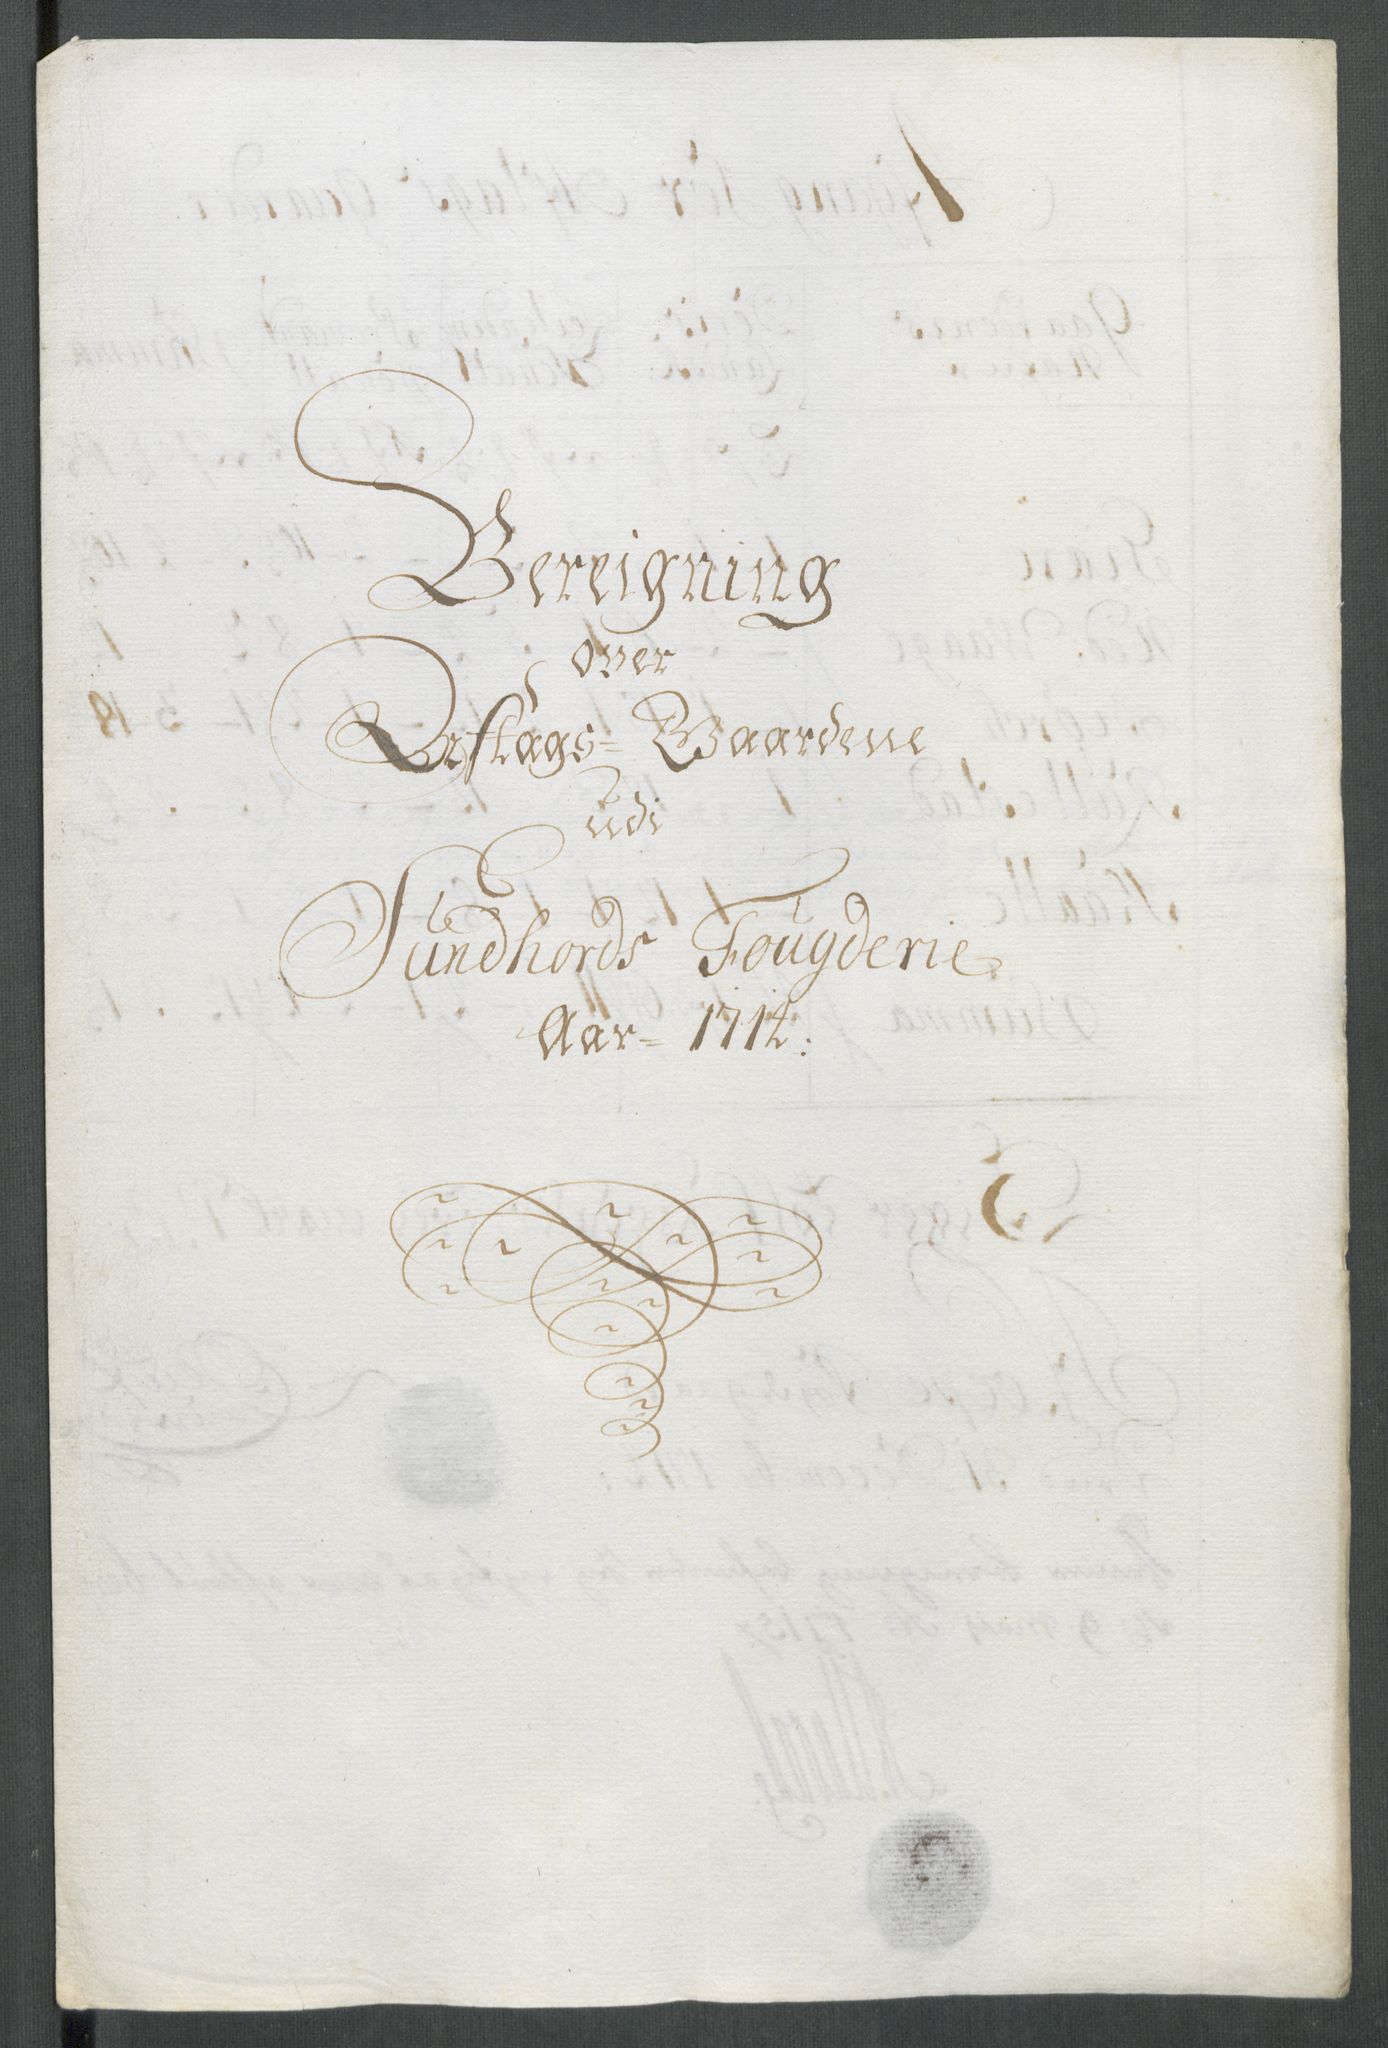 Bereigning
over
Aftags= Gaardene
udi
Sundhords Fougderie
Aar= 1714: